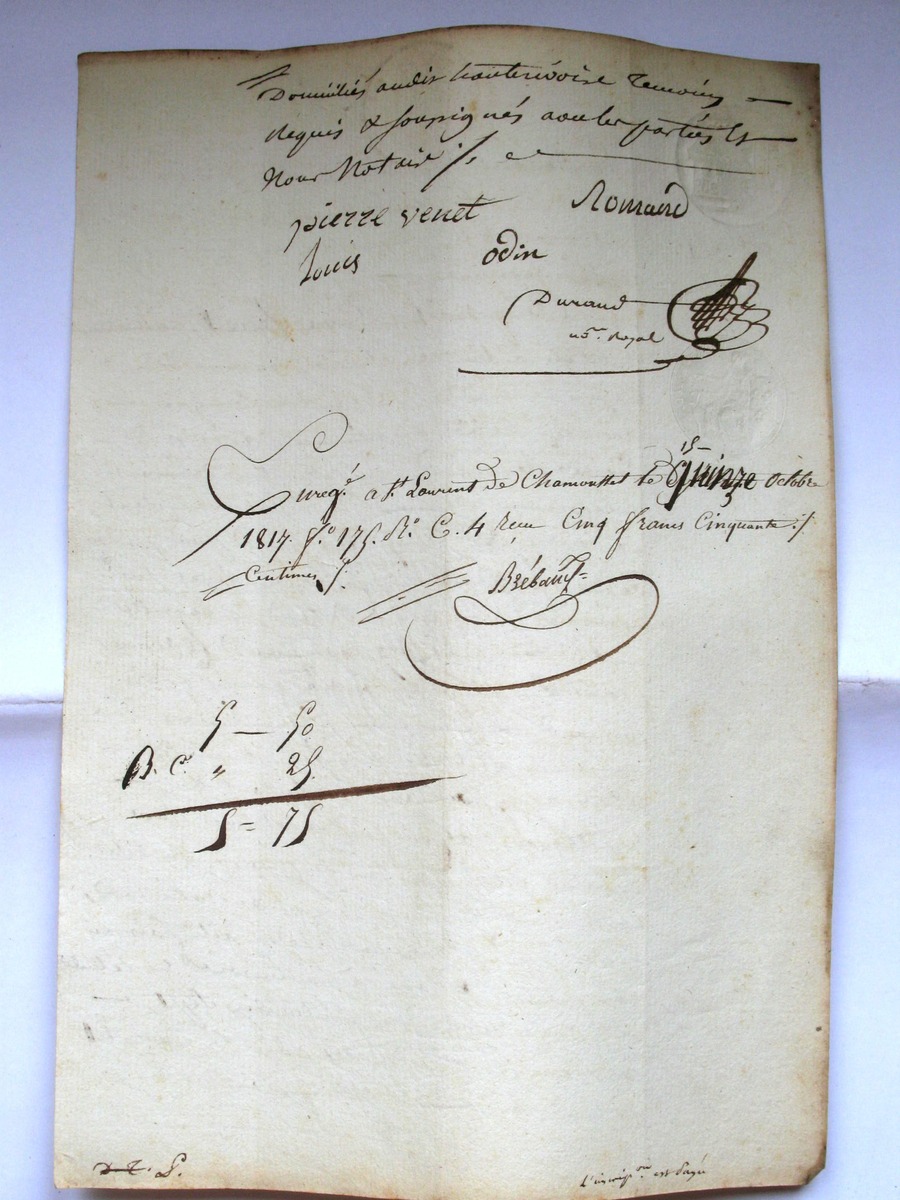 Domiciliés audit hauterivoire Temoins
Requis & soussignés avec les parties &
Nous Notaire ./.
pierre venet Romand
Louis odin
Durand
n.re Royal
15
Enreg.é a s.t Laurent de Chamousset le Quinze octobre
1817. f.o 175. R.o C. 4 reçu Cinq francs Cinquante ./.
Centimes ./.
5 — 50
B. C. " 25.
5 = 75
D. T. P.
L'inscrip.on est Payé